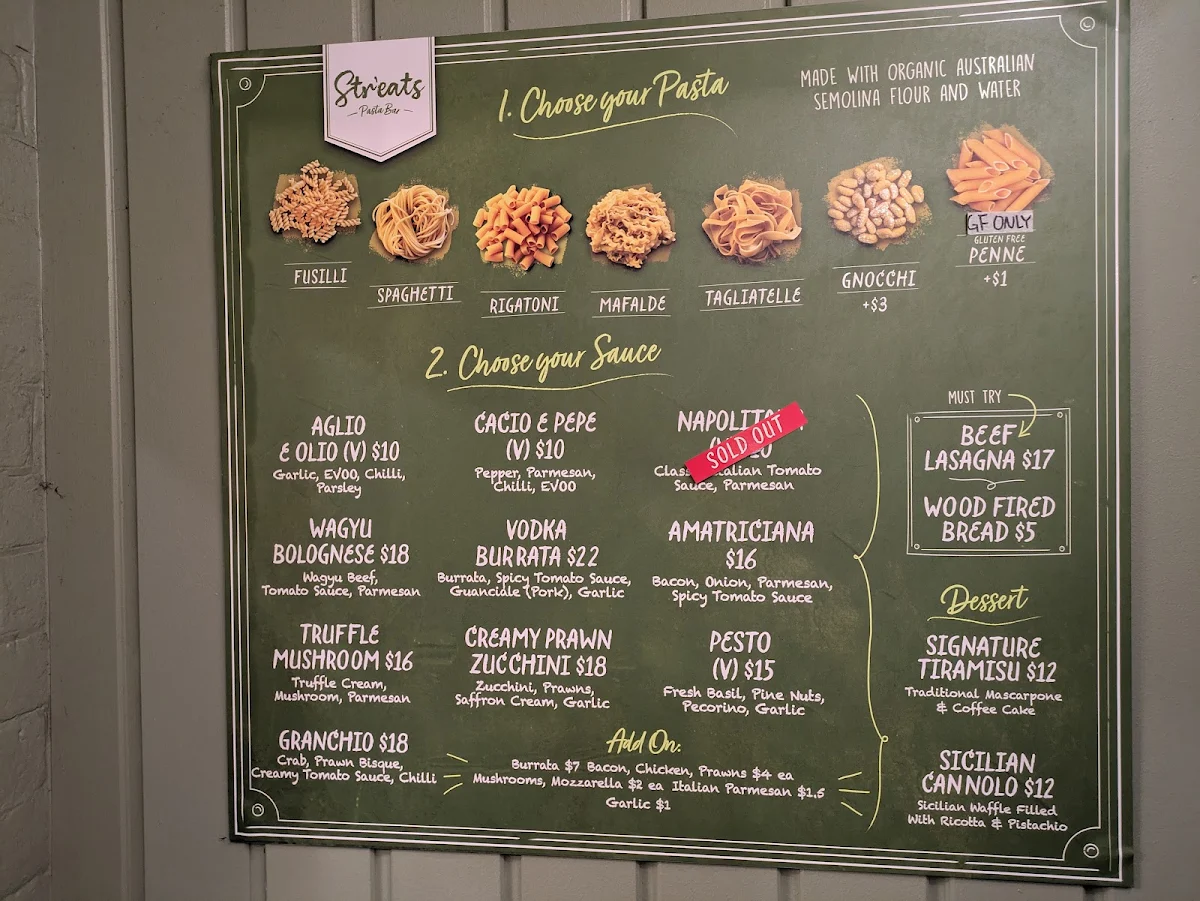 Str'eats
Pasta Bar
1. Choose your Pasta
MADE WITH ORGANIC AUSTRALIAN
SEMOLINA FLOUR AND WATER
FUSILLI
SPAGHETTI
RIGATONI
MAFALDE
TAGLIATELLE
GNOCCHI
+$3
GF ONLY
GLUTEN FREE
PENNE
+$1
2. Choose your Sauce
AGLIO
E OLIO (V) $10
Garlic, EVOO, Chilli,
Parsley
CACIO E PEPE
(V) $10
Pepper, Parmesan,
Chilli, EVOO
SOLD OUT
Italian Tomato
Sauce, Parmesan
WAGYU
BOLOGNESE $18
Wagyu Beef,
Tomato Sauce, Parmesan
VODKA
BURRATA $22
Burrata, Spicy Tomato Sauce,
Guanciale (Pork), Garlic
AMATRICIANA
$16
Bacon, Onion, Parmesan,
Spicy Tomato Sauce
TRUFFLE
MUSHROOM $16
Truffle Cream,
Mushroom, Parmesan
CREAMY PRAWN
ZUCCHINI $18
Zucchini, Prawns,
Saffron Cream, Garlic
PESTO
(V) $15
Fresh Basil, Pine Nuts,
Pecorino, Garlic
GRANCHIO $18
Crab, Prawn Bisque,
Creamy Tomato Sauce, Chilli
Add On:
Burrata $7 Bacon, Chicken, Prawns $4 ea
Mushrooms, Mozzarella $2 ea Italian Parmesan $1.5
Garlic $1
MUST TRY
BEEF
LASAGNA $17
WOOD FIRED
BREAD $5
Dessert
SIGNATURE
TIRAMISU $12
Traditional Mascarpone
& Coffee Cake
SICILIAN
CANNOLO $12
Sicilian Waffle Filled
With Ricotta & Pistachio